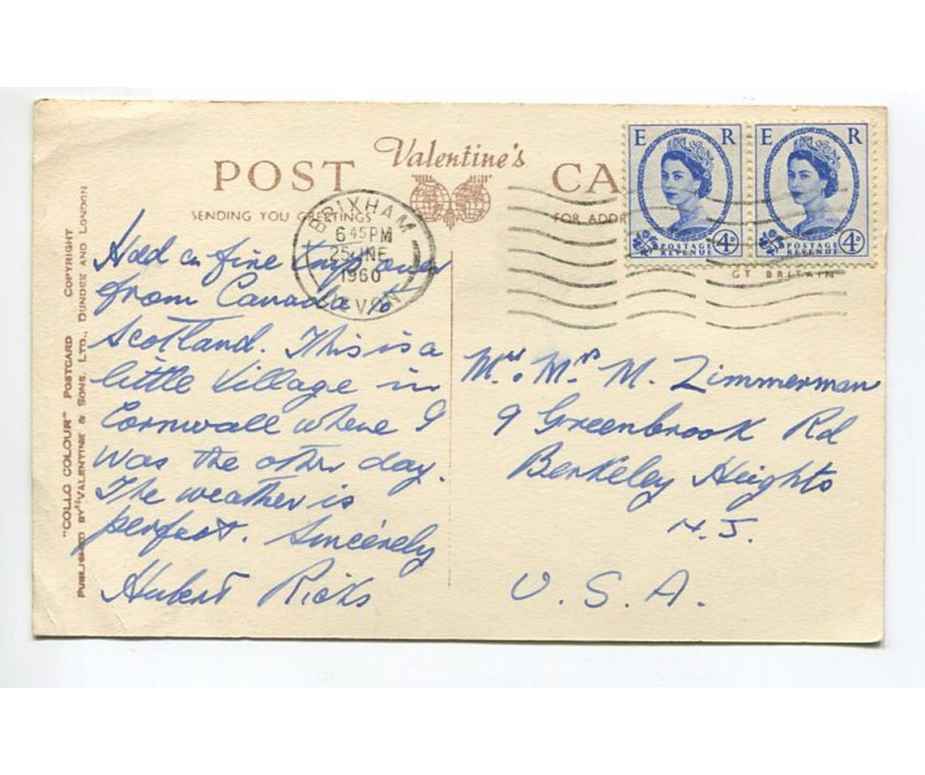 POST CA
Valentine's
SENDING YOU GREETINGS
FOR ADDR
BRIXHAM
6 45 PM
25 JNE
1960
DEVON
E R
POSTAGE
REVENUE
4D
E R
POSTAGE
REVENUE
4D
GT BRITAIN
COPYRIGHT
"COLLO COLOUR" POSTCARD
PUBLISHED BY VALENTINE & SONS, LTD., DUNDEE AND LONDON
Had a fine trip over
from Canada to
Scotland. This is a
little Village in
Cornwall where I
was the other day.
The weather is
perfect. Sincerely
Hubert
Mr. Mrs M. Zimmerman
9 Greenbrook Rd
Berkeley Heights
N.J.
U.S.A.